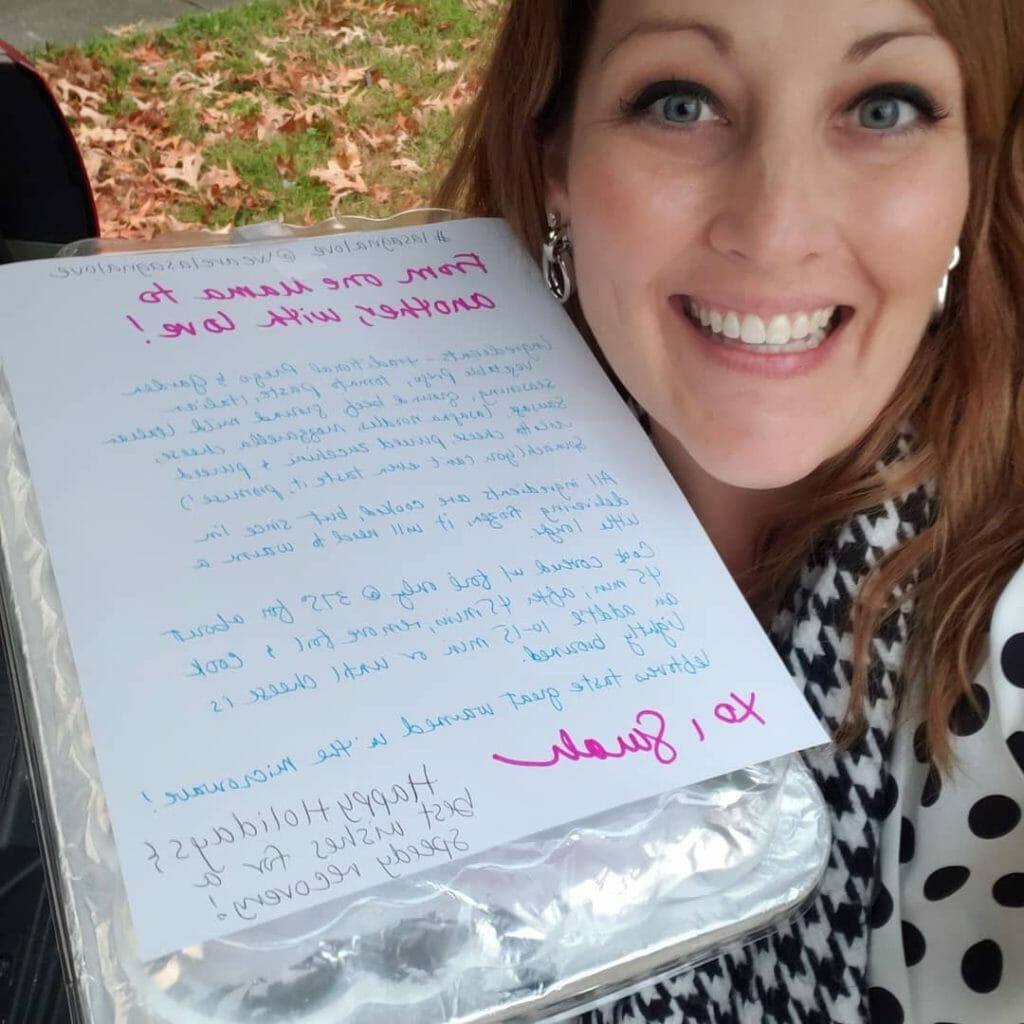 #lasagnalove @wearelasagnalove
From one Mama to
another, with love!
Ingredients - traditional Prego & garden
vegetable Prego, tomato paste, Italian
seasoning, ground beef, ground mild Italian
sausage, lasagna noodles, mozzarella cheese,
ricotta cheese, pureed zucchini & pureed
spinach (you can't even taste it, promise)
All ingredients are cooked, but since I'm
delivering frozen, it will need to warm a
little longer.
Cook covered w/ foil only @ 375° for about
45 min, after 45 min, remove foil & cook
an add'tl 10-15 min or until cheese is
lightly browned.
leftovers taste great warmed in the microwave!
xo, Sarah
Happy Holidays &
best wishes for
a
speedy recovery!